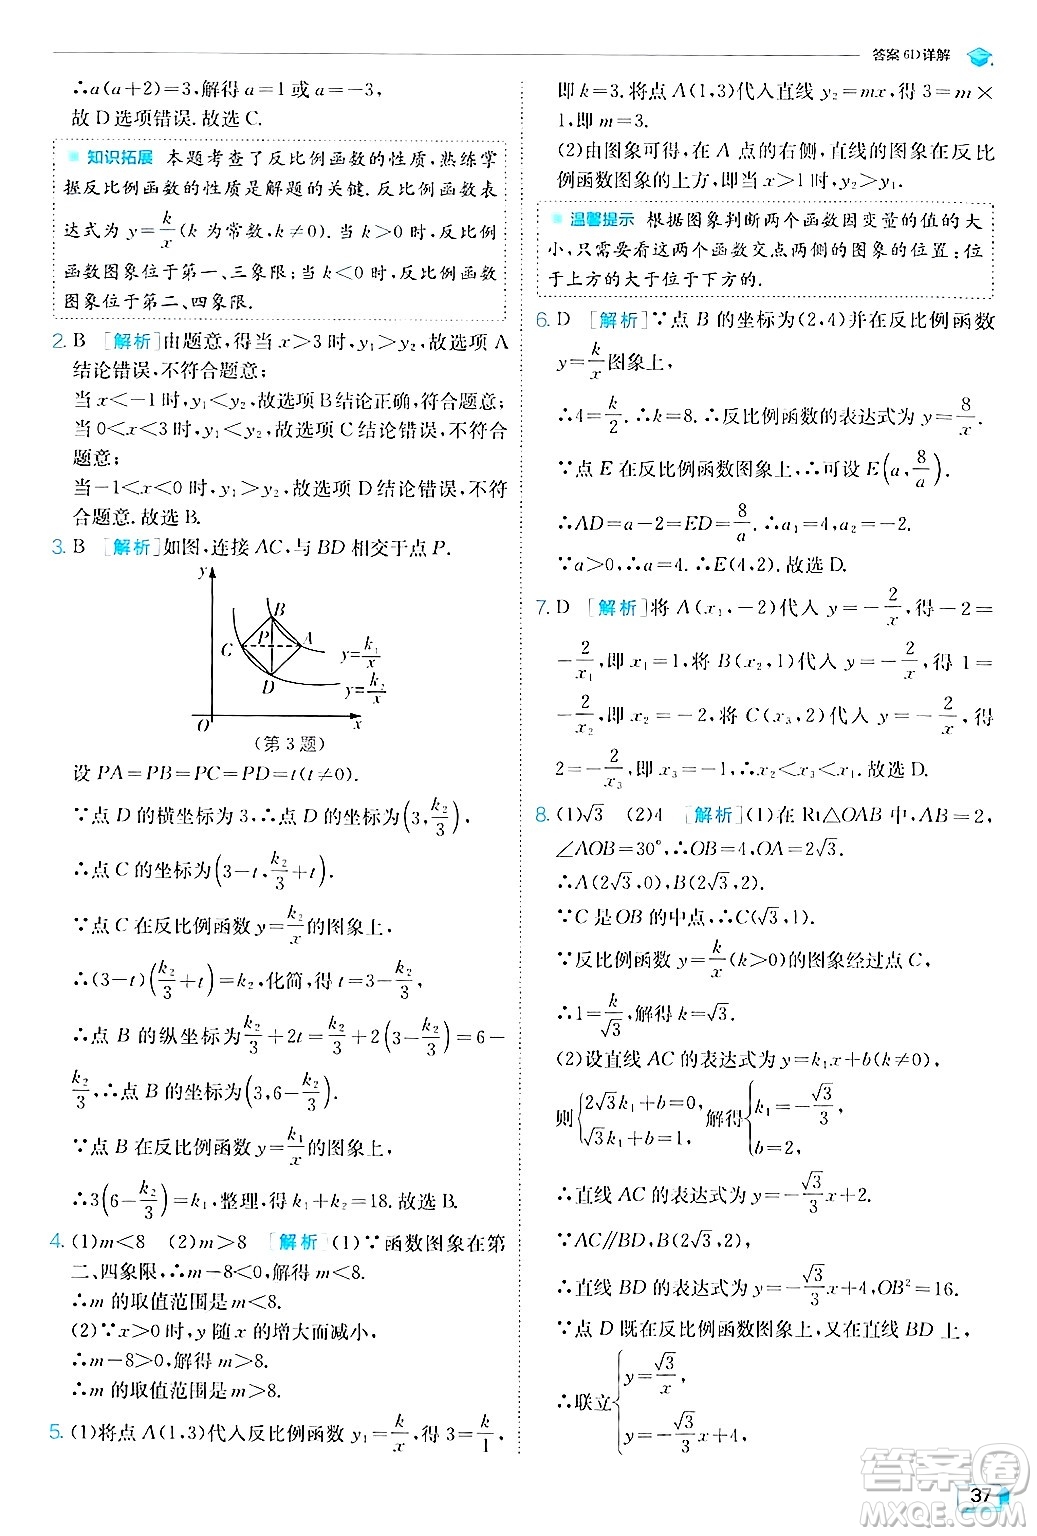 答案6D详解
∴a(a+2)=3,解得a=1或a=-3,
故D选项错误.故选C.
知识拓展 本题考查了反比例函数的性质,熟练掌
握反比例函数的性质是解题的关键.反比例函数表
达式为y=k/x(k为常数,k≠0).当k>0时,反比例
函数图象位于第一、三象限;当k<0时,反比例函数
图象位于第二、四象限.
2. B [解析]由题意,得当x>3时,y₁>y₂,故选项A
结论错误,不符合题意;
当x<-1时,y₁<y₂,故选项B结论正确,符合题意;
当0<x<3时,y₁<y₂,故选项C结论错误,不符合
题意;
当-1<x<0时,y₁>y₂,故选项D结论错误,不符
合题意.故选B.
3. B [解析]如图,连接AC,与BD相交于点P.
y
B
P
C
A
D
y=k₁/x
y=k₂/x
O
x
(第3题)
设PA=PB=PC=PD=t(t≠0).
∵点D的横坐标为3,∴点D的坐标为(3,k₂/3),
∴点C的坐标为(3-t,k₂/3+t).
∵点C在反比例函数y=k₂/x的图象上,
∴(3-t)(k₂/3+t)=k₂,化简,得t=3-k₂/3,
∴点B的纵坐标为k₂/3+2t=k₂/3+2(3-k₂/3)=6-
k₂/3,∴点B的坐标为(3,6-k₂/3).
∵点B在反比例函数y=k₁/x的图象上,
∴3(6-k₂/3)=k₁,整理,得k₁+k₂=18.故选B.
4. (1)m<8 (2)m>8 [解析](1)∵函数图象在第
二、四象限,∴m-8<0,解得m<8.
∴m的取值范围是m<8.
(2)∵x>0时,y随x的增大而减小,
∴m-8>0,解得m>8.
∴m的取值范围是m>8.
5. (1)将点A(1,3)代入反比例函数y₁=k/x,得3=k/1,
即k=3.将点A(1,3)代入直线y₂=mx,得3=m×
1,即m=3.
(2)由图象可得,在A点的右侧,直线的图象在反比
例函数图象的上方,即当x>1时,y₂>y₁.
温馨提示 根据图象判断两个函数因变量的值的大
小,只需要看这两个函数交点两侧的图象的位置:位
于上方的大于位于下方的.
6. D [解析]∵点B的坐标为(2,4)并在反比例函数
y=k/x图象上,
∴4=k/2.∴k=8.∴反比例函数的表达式为y=8/x.
∵点E在反比例函数图象上,∴可设E(a,8/a).
∴AD=a-2=ED=8/a.∴a₁=4,a₂=-2.
∵a>0,∴a=4.∴E(4,2).故选D.
7. D [解析]将A(x₁,-2)代入y=-2/x,得-2=
-2/x₁,即x₁=1,将B(x₂,1)代入y=-2/x,得1=
-2/x₂,即x₂=-2,将C(x₃,2)代入y=-2/x,得
2=-2/x₃,即x₃=-1,∴x₂<x₃<x₁.故选D.
8. (1)√3 (2)4 [解析](1)在Rt△OAB中,AB=2,
∠AOB=30°,∴OB=4,OA=2√3.
∴A(2√3,0),B(2√3,2).
∵C是OB的中点,∴C(√3,1).
∵反比例函数y=k/x(k>0)的图象经过点C,
∴1=k/√3,解得k=√3.
(2)设直线AC的表达式为y=k₁x+b(k≠0),
则{2√3k₁+b=0, √3k₁+b=1, 解得{k₁=-√3/3, b=2,
∴直线AC的表达式为y=-√3/3x+2.
∵AC∥BD,
∴直线BD的表达式为y=-√3/3x+4,OB²=16.
∵点D既在反比例函数图象上,又在直线BD上,
∴联立{y=√3/x, y=-√3/3x+4,
37
答案圈
MXQE.COM